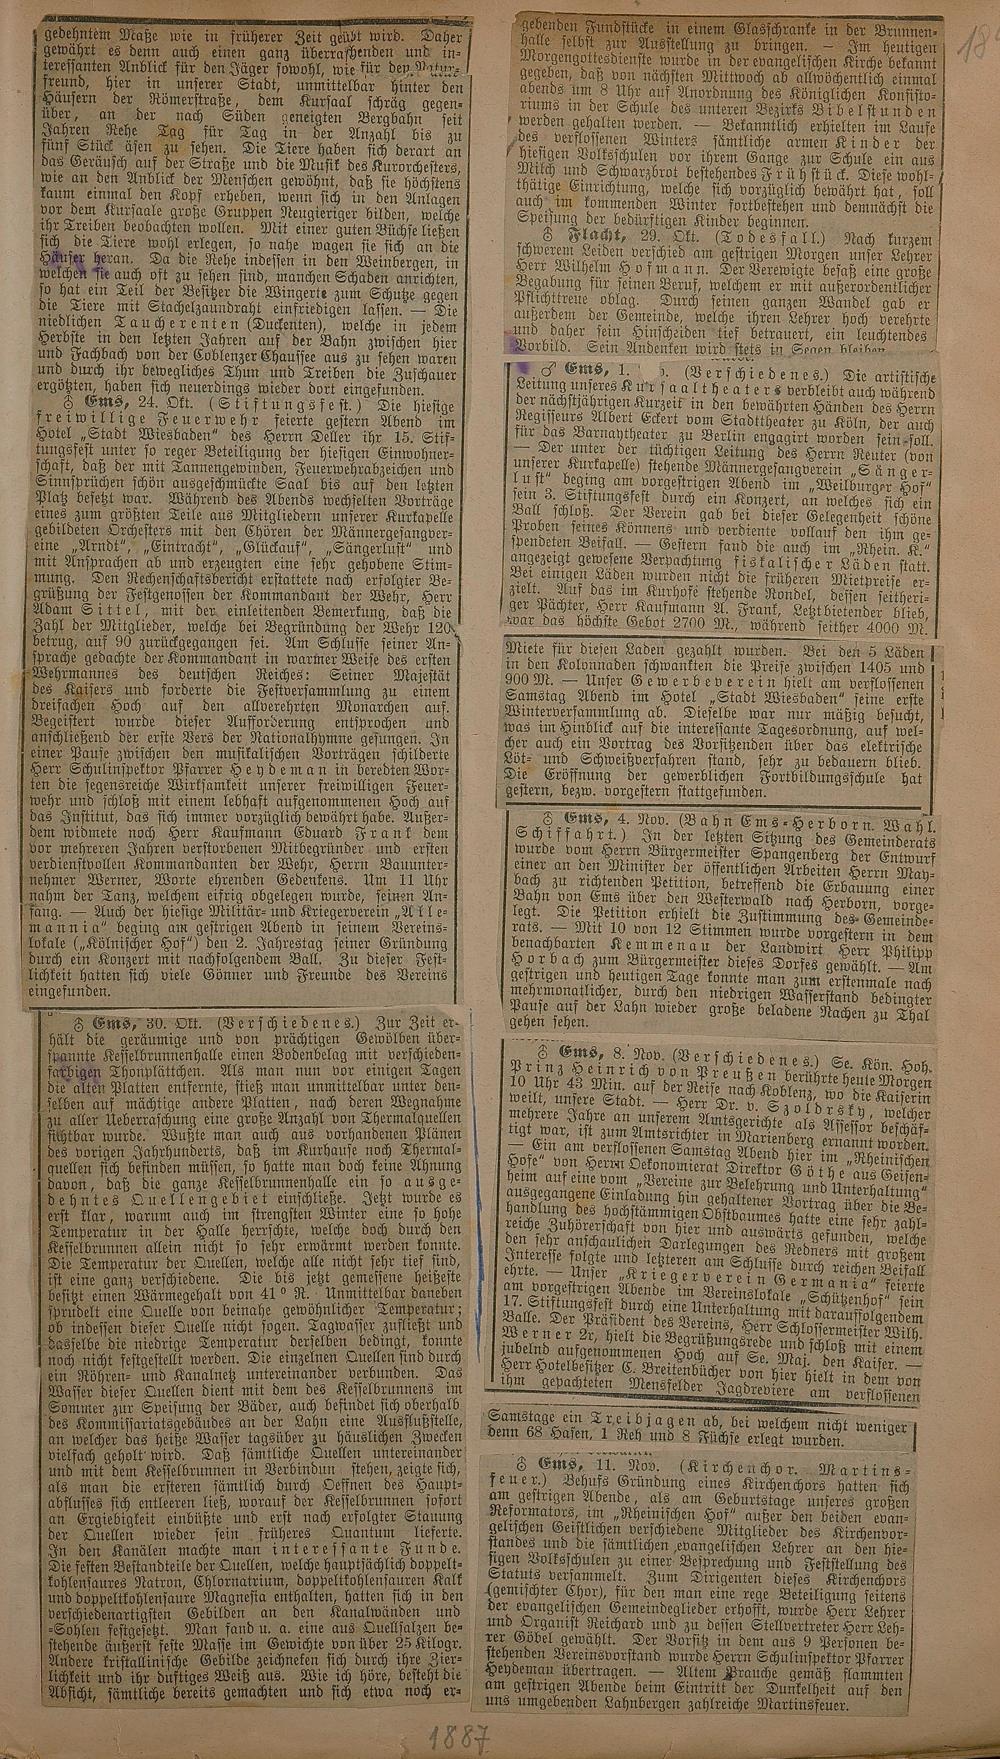 gedehntem Maße wie in früherer Zeit geübt wird. Daher
gewährt es denn auch einen ganz überraschenden und in-
teressanten Anblick für den Jäger sowohl, wie für den Natur-
freund, hier in unserer Stadt, unmittelbar hinter den
Häusern der Römerstraße, dem Kursaal schräg gegen-
über, an der nach Süden geneigten Bergbahn seit
Jahren Rehe Tag für Tag in der Anzahl bis zu
fünf Stück äsen zu sehen. Die Tiere haben sich derart an
das Geräusch auf der Straße und die Musik des Kurorchesters,
wie an den Anblick der Menschen gewöhnt, daß sie höchstens
kaum einmal den Kopf erheben, wenn sich in den Anlagen
vor dem Kursaale große Gruppen Neugieriger bilden, welche
ihr Treiben beobachten wollen. Mit einer guten Büchse ließen
sich die Tiere wohl erlegen, so nahe wagen sie sich an die
Häuser heran. Da die Rehe indessen in den Weinbergen, in
welchen sie auch oft zu sehen sind, manchen Schaden anrichten,
so hat ein Teil der Besitzer die Wingerte zum Schutze gegen
die Tiere mit Stachelzaundraht einfriedigen lassen. — Die
niedlichen Taucherenten (Duckenten), welche in jedem
Herbste in den letzten Jahren auf der Bahn zwischen hier
und Fachbach von der Coblenzer Chaussee aus zu sehen waren
und durch ihr bewegliches Thun und Treiben die Zuschauer
ergötzten, haben sich neuerdings wieder dort eingefunden.
♁ Ems, 24. Okt. (Stiftungsfest.) Die hiesige
freiwillige Feuerwehr feierte gestern Abend im
Hotel „Stadt Wiesbaden“ des Herrn Deller ihr 15. Stif-
tungsfest unter so reger Beteiligung der hiesigen Einwohner-
schaft, daß der mit Tannengewinden, Feuerwehrabzeichen und
Sinnsprüchen schön ausgeschmückte Saal bis auf den letzten
Platz besetzt war. Während des Abends wechselten Vorträge
eines zum größten Teile aus Mitgliedern unserer Kurkapelle
gebildeten Orchesters mit den Chören der Männergesangver-
eine „Arndt“, „Eintracht“, „Glückauf“, „Sängerlust“ und
mit Ansprachen ab und erzeugten eine sehr gehobene Stim-
mung. Den Rechenschaftsbericht erstattete nach erfolgter Be-
grüßung der Festgenossen der Kommandant der Wehr, Herr
Adam Sittel, mit der einleitenden Bemerkung, daß die
Zahl der Mitglieder, welche bei Begründung der Wehr 120
betrug, auf 90 zurückgegangen sei. Am Schlusse seiner An-
sprache gedachte der Kommandant in warmer Weise des ersten
Wehrmannes des deutschen Reiches: Seiner Majestät
des Kaisers und forderte die Festversammlung zu einem
dreifachen Hoch auf den allverehrten Monarchen auf.
Begeistert wurde dieser Aufforderung entsprochen und
anschließend der erste Vers der Nationalhymne gesungen. In
einer Pause zwischen den musikalischen Vorträgen schilderte
Herr Schulinspektor Pfarrer Heydeman in beredten Wor-
ten die segensreiche Wirksamkeit unserer freiwilligen Feuer-
wehr und schloß mit einem lebhaft aufgenommenen Hoch auf
das Institut, das sich immer vorzüglich bewährt habe. Außer-
dem widmete noch Herr Kaufmann Eduard Frank dem
vor mehreren Jahren verstorbenen Mitbegründer und ersten
verdienstvollen Kommandanten der Wehr, Herrn Bauunter-
nehmer Werner, Worte ehrenden Gedenkens. Um 11 Uhr
nahm der Tanz, welchem eifrig obgelegen wurde, seinen An-
fang. — Auch der hiesige Militär- und Kriegerverein „Alle-
mannia“ beging am gestrigen Abend in seinem Vereins-
lokale („Kölnischer Hof“) den 2. Jahrestag seiner Gründung
durch ein Konzert mit nachfolgendem Ball. Zu dieser Fest-
lichkeit hatten sich viele Gönner und Freunde des Vereins
eingefunden.
♁ Ems, 30. Okt. (Verschiedenes.) Zur Zeit er-
hält die geräumige und von prächtigen Gewölben über-
spannte Kesselbrunnenhalle einen Bodenbelag mit verschieden-
farbigen Thonplättchen. Als man nun vor einigen Tagen
die alten Platten entfernte, stieß man unmittelbar unter den-
selben auf mächtige andere Platten, nach deren Wegnahme
zu aller Ueberraschung eine große Anzahl von Thermalquellen
sichtbar wurde. Wußte man auch aus vorhandenen Plänen
des vorigen Jahrhunderts, daß im Kurhause noch Thermal-
quellen sich befinden müssen, so hatte man doch keine Ahnung
davon, daß die ganze Kesselbrunnenhalle ein so ausge-
dehntes Quellengebiet einschließe. Jetzt wurde es
erst klar, warum auch im strengsten Winter eine so hohe
Temperatur in der Halle herrschte, welche doch durch den
Kesselbrunnen allein nicht so sehr erwärmt werden konnte.
Die Temperatur der Quellen, welche alle nicht sehr tief sind,
ist eine ganz verschiedene. Die bis jetzt gemessene heißeste
besitzt einen Wärmegehalt von 41° R. Unmittelbar daneben
sprudelt eine Quelle von beinahe gewöhnlicher Temperatur;
ob indessen dieser Quelle nicht sogen. Tagwasser zufließt und
dasselbe die niedrige Temperatur derselben bedingt, konnte
noch nicht festgestellt werden. Die einzelnen Quellen sind durch
ein Röhren- und Kanalnetz untereinander verbunden. Das
Wasser dieser Quellen dient mit dem des Kesselbrunnens im
Sommer zur Speisung der Bäder, auch befindet sich oberhalb
des Kommissariatsgebäudes an der Lahn eine Ausflußstelle,
an welcher das heiße Wasser tagsüber zu häuslichen Zwecken
vielfach geholt wird. Daß sämtliche Quellen untereinander
und mit dem Kesselbrunnen in Verbindun stehen, zeigte sich,
als man die ersteren sämtlich durch Oeffnen des Haupt-
abflusses sich entleeren ließ, worauf der Kesselbrunnen sofort
an Ergiebigkeit einbüßte und erst nach erfolgter Stauung
der Quellen wieder sein früheres Quantum lieferte.
In den Kanälen machte man interessante Funde.
Die festen Bestandteile der Quellen, welche hauptsächlich doppelt-
kohlensaures Natron, Chlornatrium, doppeltkohlensauren Kalk
und doppeltkohlensaure Magnesia enthalten, hatten sich in den
verschiedenartigsten Gebilden an den Kanalwänden und
-Sohlen festgesetzt. Man fand u. a. eine aus Quellsalzen be-
stehende äußerst feste Masse im Gewichte von über 25 Kilogr.
Andere kristallinische Gebilde zeichneten sich durch ihre Zier-
lichkeit und ihr duftiges Weiß aus. Wie ich höre, besteht die
Absicht, sämtliche bereits gemachten und sich etwa noch er-
gebenden Fundstücke in einem Glasschranke in der Brunnen-
halle selbst zur Ausstellung zu bringen. — Im heutigen
Morgengottesdienste wurde in der evangelischen Kirche bekannt
gegeben, daß von nächsten Mittwoch ab allwöchentlich einmal
abends um 8 Uhr auf Anordnung des Königlichen Konsisto-
riums in der Schule des unteren Bezirks Bibelstunden
werden gehalten werden. — Bekanntlich erhielten im Laufe
des verflossenen Winters sämtliche armen Kinder der
hiesigen Volksschulen vor ihrem Gange zur Schule ein aus
Milch und Schwarzbrot bestehendes Frühstück. Diese wohl-
thätige Einrichtung, welche sich vorzüglich bewährt hat, soll
auch im kommenden Winter fortbestehen und demnächst die
Speisung der bedürftigen Kinder beginnen.
♁ Flacht, 29. Okt. (Todesfall.) Nach kurzem
schwerem Leiden verschied am gestrigen Morgen unser Lehrer
Herr Wilhelm Hofmann. Der Verewigte besaß eine große
Begabung für seinen Beruf, welchem er mit außerordentlicher
Pflichttreue oblag. Durch seinen ganzen Wandel gab er
außerdem der Gemeinde, welche ihren Lehrer hoch verehrte
und daher sein Hinscheiden tief betrauert, ein leuchtendes
Vorbild. Sein Andenken wird stets in Segen bleiben.
♂ Ems, 1. (Verschiedenes.) Die artistische
Leitung unseres Kursaaltheaters verbleibt auch während
der nächstjährigen Kurzeit in den bewährten Händen des Herrn
Regisseurs Albert Eckert vom Stadttheater zu Köln, der auch
für das Barnaytheater zu Berlin engagirt worden sein soll.
— Der unter der tüchtigen Leitung des Herrn Reuter (von
unserer Kurkapelle) stehende Männergesangverein „Sänger-
lust“ beging am vorgestrigen Abend im „Weilburger Hof“
sein 3. Stiftungsfest durch ein Konzert, an welches sich ein
Ball schloß. Der Verein gab bei dieser Gelegenheit schöne
Proben seines Könnens und verdiente vollauf den ihm ge-
spendeten Beifall. — Gestern fand die auch im „Rhein. K.“
angezeigt gewesene Verpachtung fiskalischer Läden statt.
Bei einigen Läden wurden nicht die früheren Mietpreise er-
zielt. Auf das im Kurhofe stehende Rondel, dessen seitheri-
ger Pächter, Herr Kaufmann A. Frank, Letztbietender blieb,
war das höchste Gebot 2700 M., während seither 4000 M.
Miete für diesen Laden gezahlt wurden. Bei den 5 Läden
in den Kolonnaden schwankten die Preise zwischen 1405 und
900 M. — Unser Gewerbeverein hielt am verflossenen
Samstag Abend im Hotel „Stadt Wiesbaden“ seine erste
Winterversammlung ab. Dieselbe war nur mäßig besucht,
was im Hinblick auf die interessante Tagesordnung, auf wel-
cher auch ein Vortrag des Vorsitzenden über das elektrische
Löt- und Schweißverfahren stand, sehr zu bedauern blieb.
Die Eröffnung der gewerblichen Fortbildungsschule hat
gestern, bezw. vorgestern stattgefunden.
♁ Ems, 4. Nov. (Bahn Ems-Herborn. Wahl.
Schiffahrt.) In der letzten Sitzung des Gemeinderats
wurde vom Herrn Bürgermeister Spangenberg der Entwurf
einer an den Minister der öffentlichen Arbeiten Herrn May-
bach zu richtenden Petition, betreffend die Erbauung einer
Bahn von Ems über den Westerwald nach Herborn, vorge-
legt. Die Petition erhielt die Zustimmung des Gemeinde-
rats. — Mit 10 von 12 Stimmen wurde vorgestern in dem
benachbarten Kemmenau der Landwirt Herr Philipp
Horbach zum Bürgermeister dieses Dorfes gewählt. — Am
gestrigen und heutigen Tage konnte man zum erstenmale nach
mehrmonatlicher, durch den niedrigen Wasserstand bedingter
Pause auf der Lahn wieder große beladene Nachen zu Thal
gehen sehen.
♁ Ems, 8. Nov. (Verschiedenes.) Se. Kön. Hoh.
Prinz Heinrich von Preußen berührte heute Morgen
10 Uhr 43 Min. auf der Reise nach Koblenz, wo die Kaiserin
weilt, unsere Stadt. — Herr Dr. v. Szoldrsky, welcher
mehrere Jahre an unserem Amtsgerichte als Assessor beschäf-
tigt war, ist zum Amtsrichter in Marienberg ernannt worden.
— Ein am verflossenen Samstag Abend hier im „Rheinischen
Hofe“ von Herrn Oekonomierat Direktor Göthe aus Geisen-
heim auf eine vom „Vereine zur Belehrung und Unterhaltung“
ausgegangene Einladung hin gehaltener Vortrag über die Be-
handlung des hochstämmigen Obstbaumes hatte eine sehr zahl-
reiche Zuhörerschaft von hier und auswärts gefunden, welche
den sehr anschaulichen Darlegungen des Redners mit großem
Interesse folgte und letzteren am Schlusse durch reichen Beifall
ehrte. — Unser „Kriegerverein Germania“ feierte
am vorgestrigen Abende im Vereinslokale „Schützenhof“ sein
17. Stiftungsfest durch eine Unterhaltung mit darauffolgendem
Balle. Der Präsident des Vereins, Herr Schlossermeister Wilh.
Werner 2r, hielt die Begrüßungsrede und schloß mit einem
jubelnd aufgenommenen Hoch auf Se. Maj. den Kaiser. —
Herr Hotelbesitzer C. Breitenbücher von hier hielt in dem von
ihm gepachteten Mensfelder Jagdreviere am verflossenen
Samstage ein Treibjagen ab, bei welchem nicht weniger
denn 68 Hasen, 1 Reh und 8 Füchse erlegt wurden.
♁ Ems, 11. Nov. (Kirchenchor. Martins-
feuer.) Behufs Gründung eines Kirchenchors hatten sich
am gestrigen Abende, als am Geburtstage unseres großen
Reformators, im „Rheinischen Hof“ außer den beiden evan-
gelischen Geistlichen verschiedene Mitglieder des Kirchenvor-
standes und die sämtlichen evangelischen Lehrer an den hie-
sigen Volksschulen zu einer Besprechung und Feststellung des
Statuts versammelt. Zum Dirigenten dieses Kirchenchors
(gemischter Chor), für den man eine rege Beteiligung seitens
der evangelischen Gemeindeglieder erhofft, wurde Herr Lehrer
und Organist Reichard und zu dessen Stellvertreter Herr Leh-
rer Göbel gewählt. Der Vorsitz in dem aus 9 Personen be-
stehenden Vereinsvorstand wurde Herrn Schulinspektor Pfarrer
Heydeman übertragen. — Altem Brauche gemäß flammten
am gestrigen Abende beim Eintritt der Dunkelheit auf den
uns umgebenden Lahnbergen zahlreiche Martinsfeuer.
1887